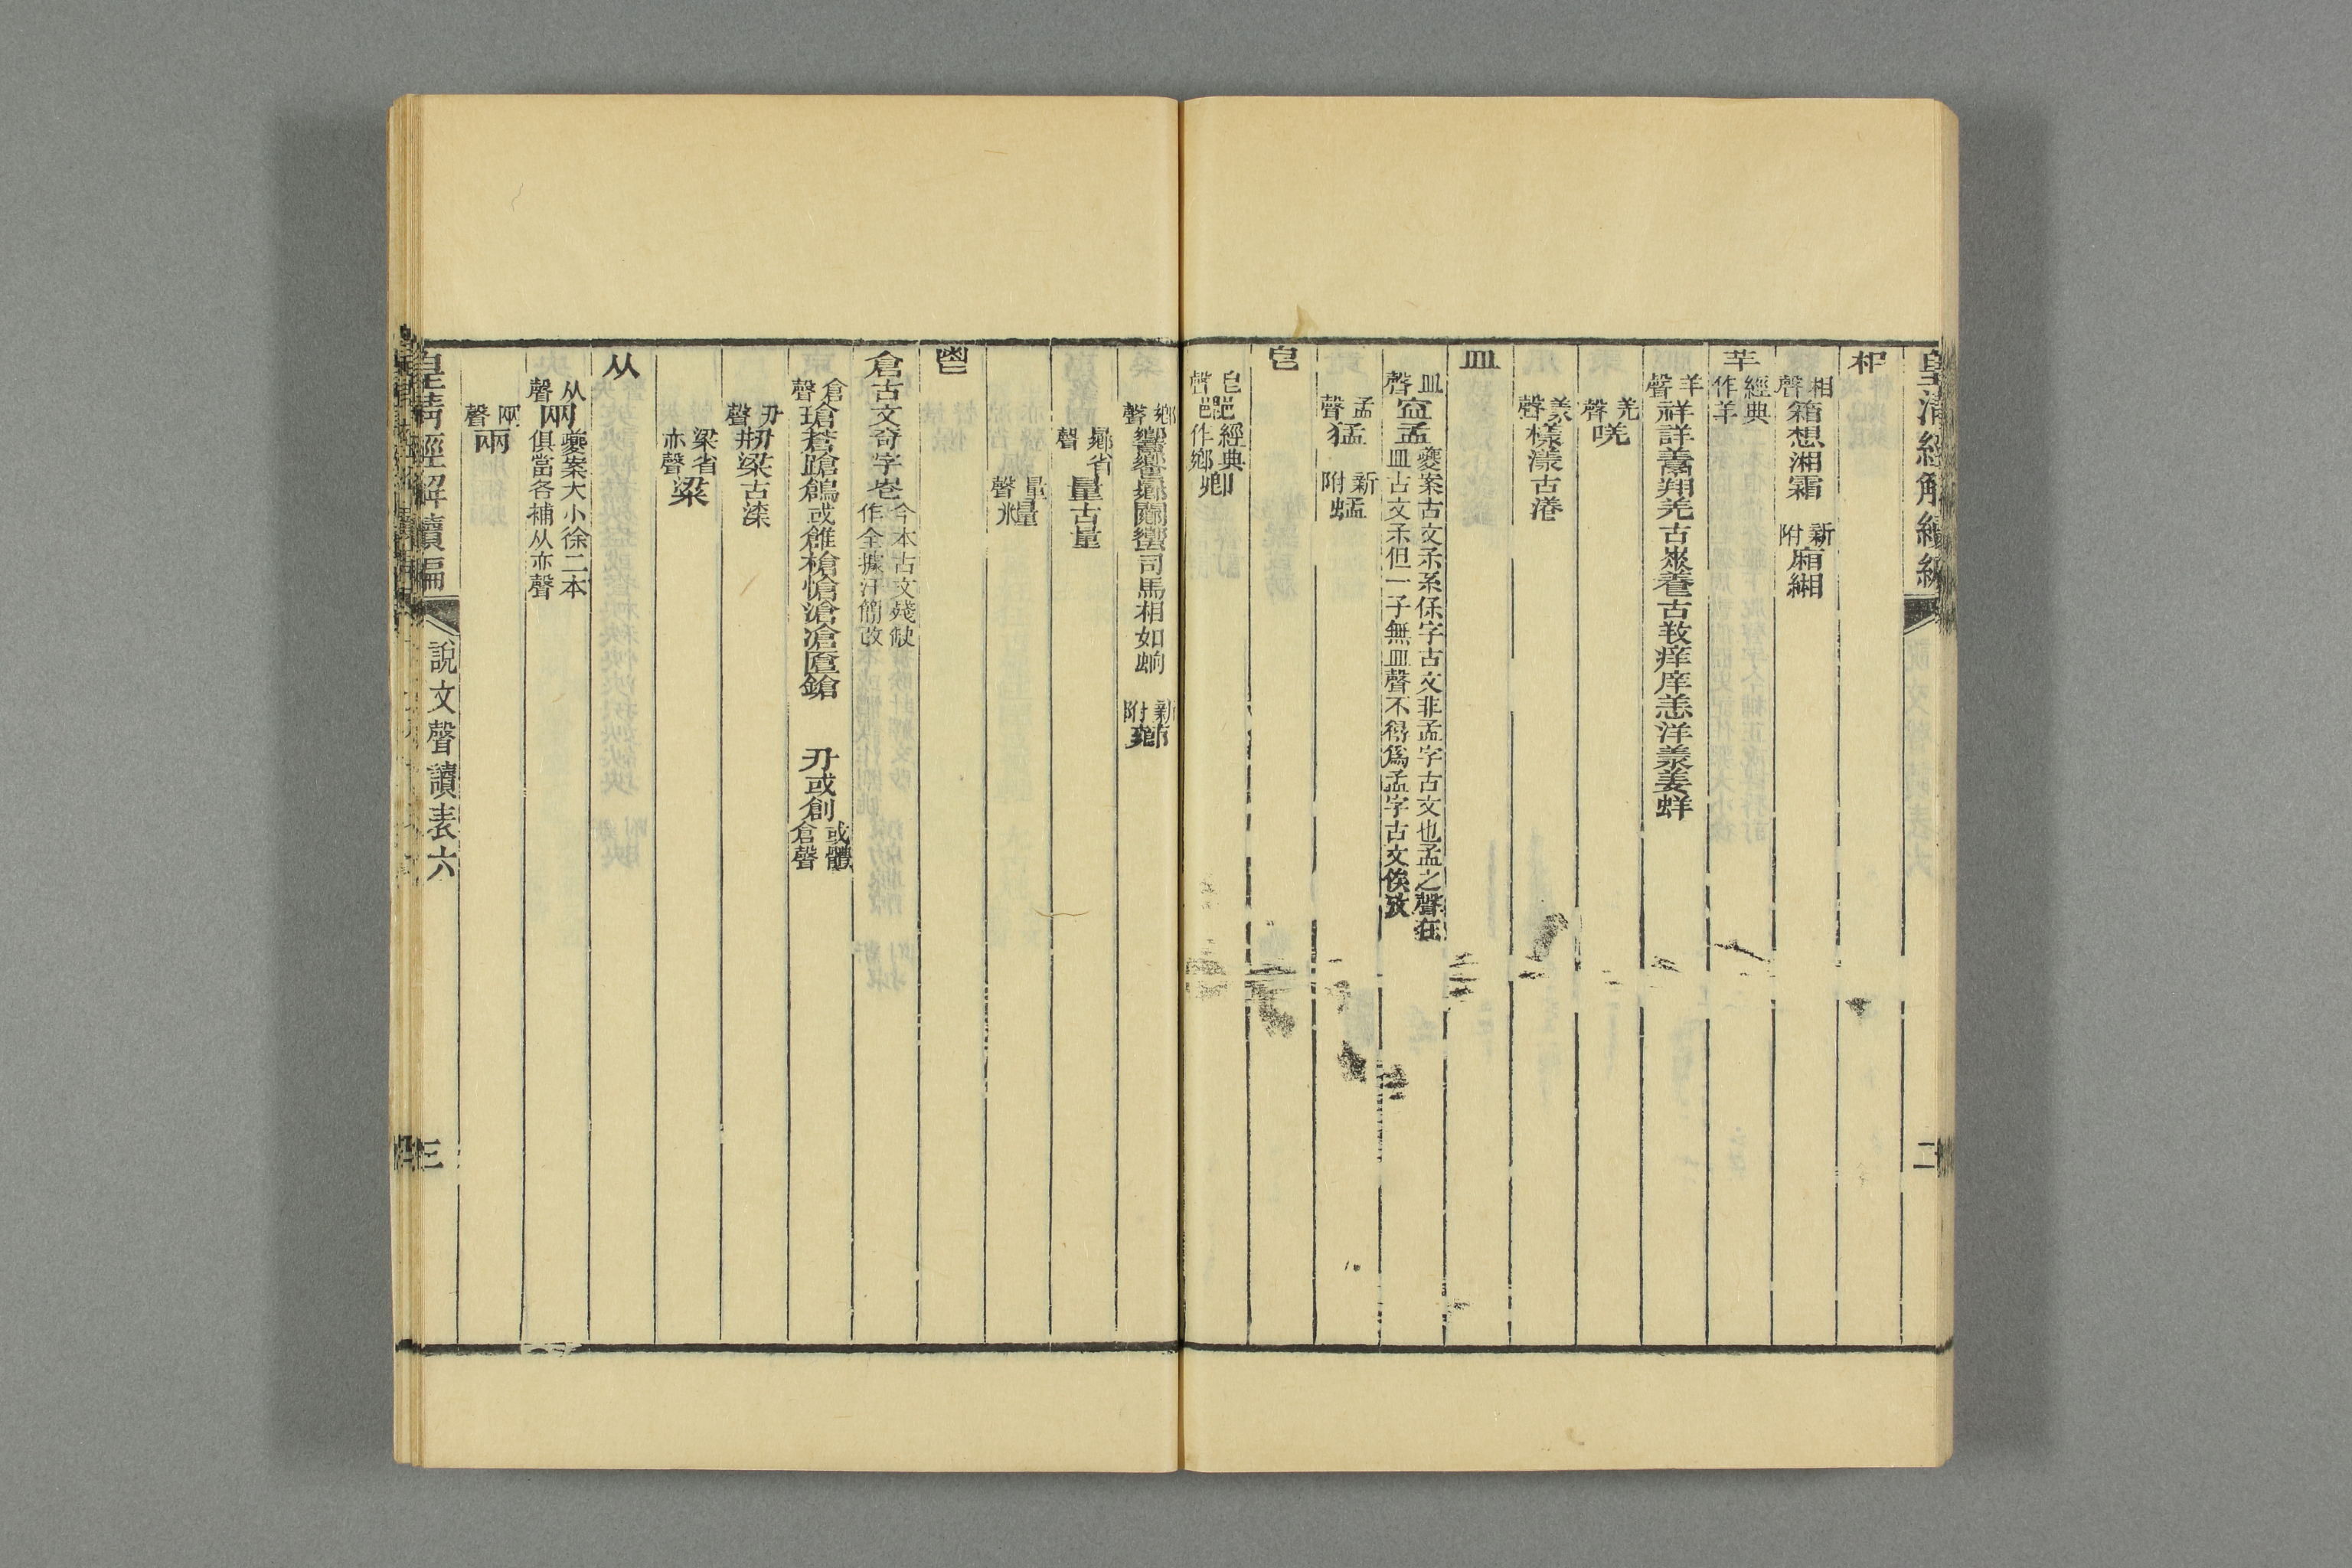 皇清經解續編
二
相
相聲箱想湘霜 新附廂緗
羊經典作羊
羊聲祥詳羛翔羌古養古𢼝痒庠恙洋羕姜蛘
羌聲唴
羕聲樣漾古瀁
皿
皿聲𥁕孟夔案古文𣎼系保字古文非孟字古文也孟之聲在皿古文𣎼但一子無皿聲不得爲孟字古文俟攷
孟聲猛 新附蜢
皀
皀聲經典作鄉卿
鄉聲響饗曏闀蠁司馬相如蚼 新附薌
曏省聲量古量
量聲糧
鬯
倉古文奇字今本古文殘缺作全據汗簡改
倉聲瑲蒼蹌鶬或鶬槍愴滄凔匫鎗 刅或創或體倉聲
刅聲刱梁古漆
梁省亦聲粱
从
从聲㒳夔案大小徐二本俱當各補从亦聲
㒳聲兩
皇清經解續編
說文聲讀表六
三